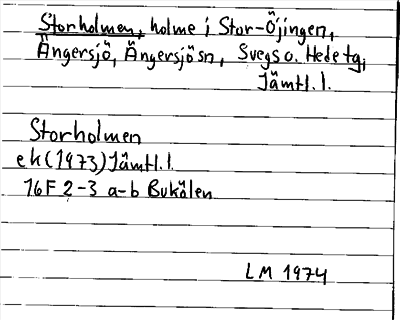 Storholmen, holme i Stor-Öjingen,
Ängersjö, Ängersjö sn, Svegs o. Hede tg,
Jämtl. l.
Storholmen
ek (1973) Jämtl. l.
16F 2-3 a-b Bukälen
LM 1974